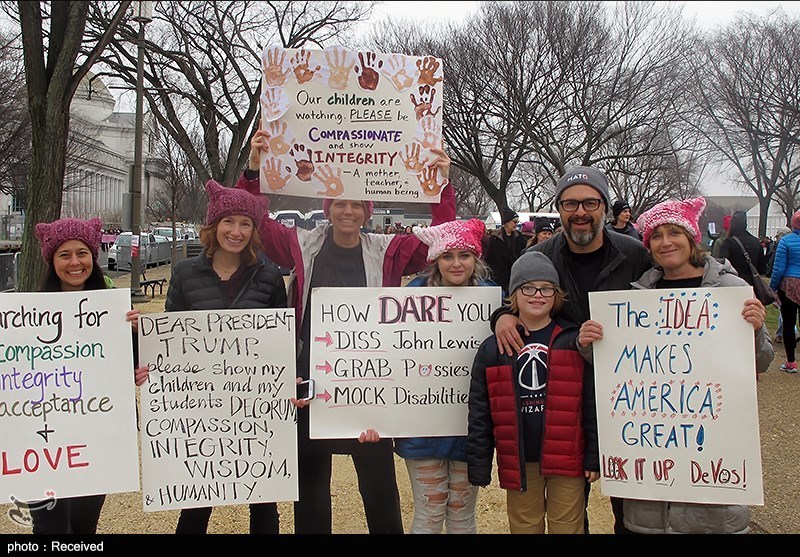 Our children are
watching. PLEASE be
COMPASSIONATE
and show
INTEGRITY
— A mother,
teacher, +
human being
arching for
compassion
integrity
acceptance
+
LOVE
DEAR PRESIDENT
TRUMP,
please show my
children and my
students DECORUM,
COMPASSION,
INTEGRITY,
WISDOM,
& HUMANITY.
HOW DARE YOU
→ DISS John Lewis
→ GRAB Pussies
→ MOCK Disabilities
The IDEA
MAKES
AMERICA
GREAT!
LOOK IT UP, DeVos!
NATO
WIZAR
photo : Received